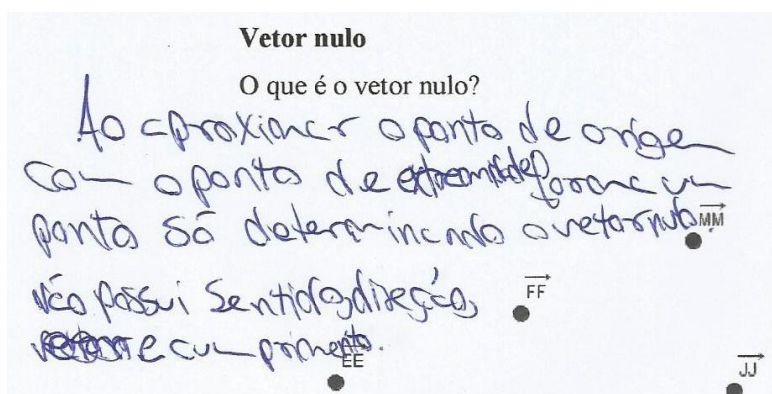 Vetor nulo
O que é o vetor nulo?
Ao aproximar o ponto de origem
com o ponto de extremidade forma um
ponto só determinando o vetor nulo. MM
não possui sentido, direção, FF
e cumprimento.
EE
JJ